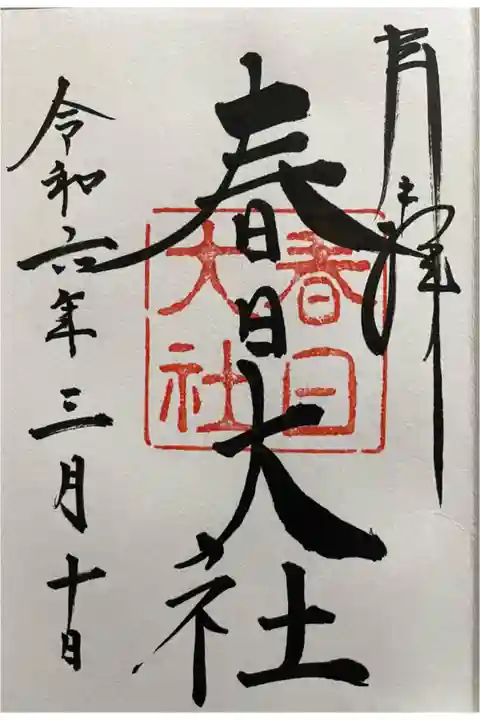 春日大社
春日
大社
令和六年三月十日